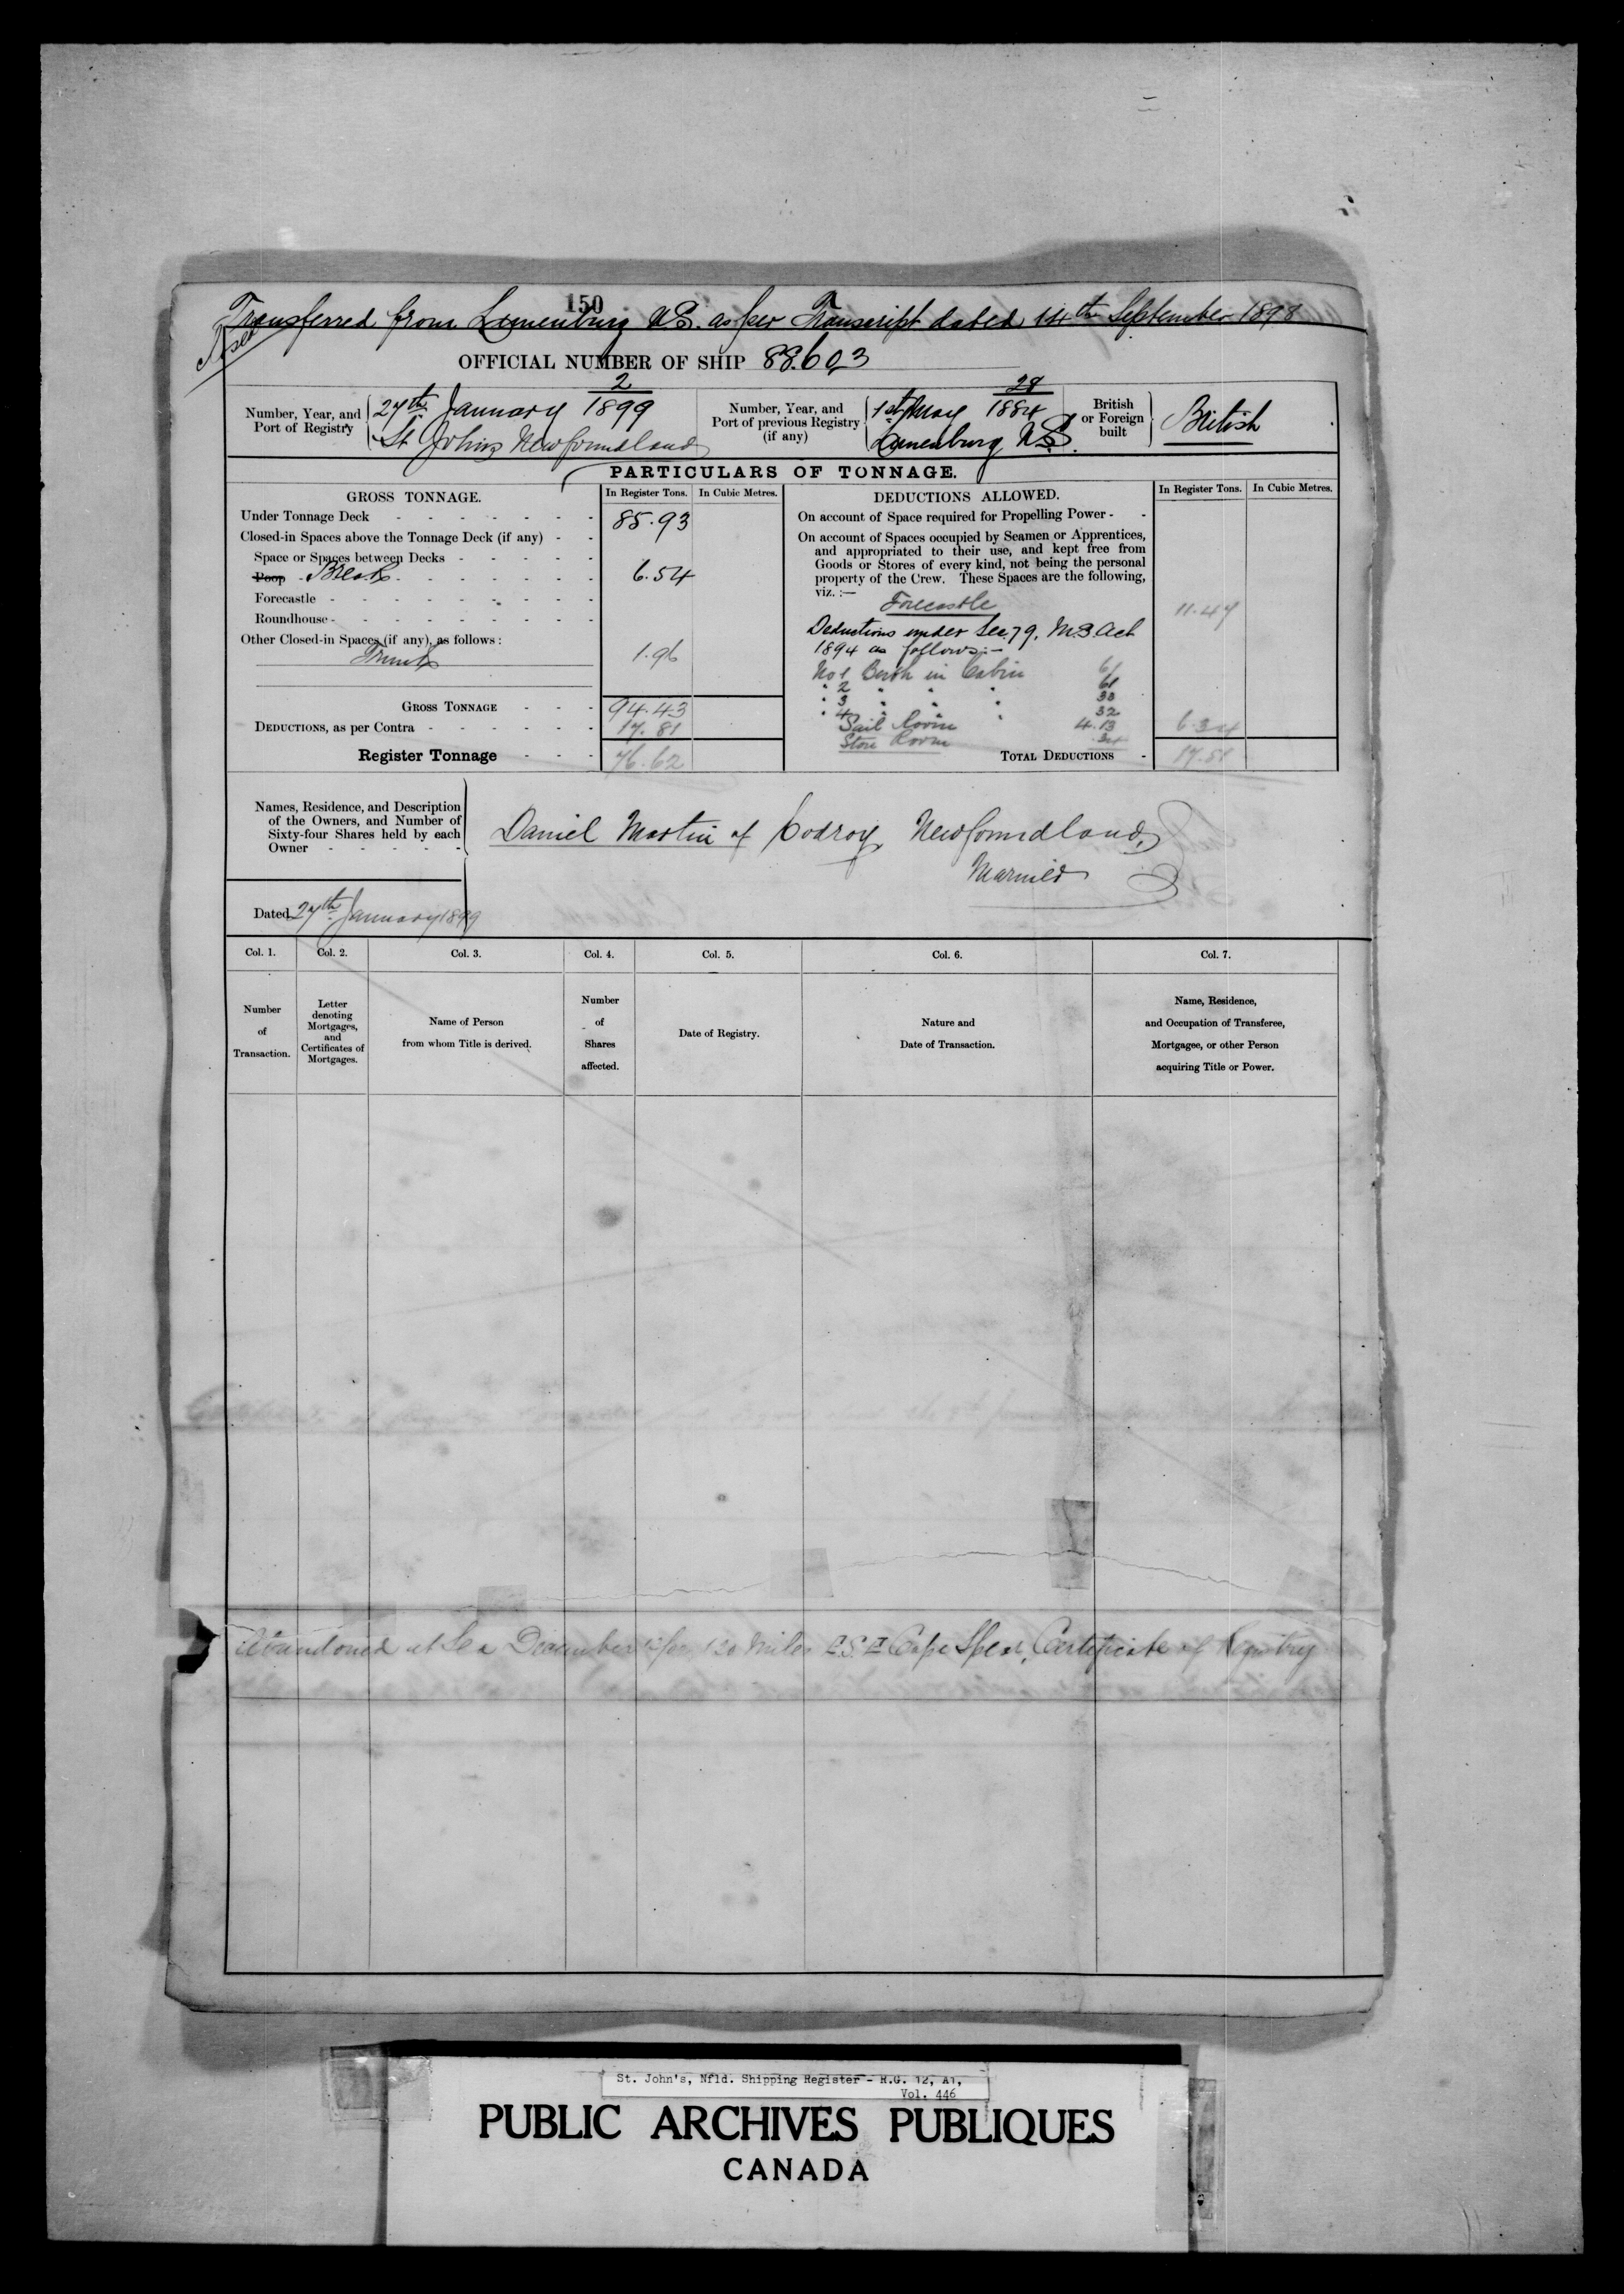 150
Transferred from Lunenburg N.S. as per Transcript dated 14th September 1898
OFFICIAL NUMBER OF SHIP 88.603
Number, Year, and Port of Registry
2
27th January 1899
St Johns Newfoundland
Number, Year, and Port of previous Registry (if any)
28
1st May 1884
Lunenburg N.S.
British or Foreign built
British
PARTICULARS OF TONNAGE.
GROSS TONNAGE.
In Register Tons.
In Cubic Metres.
Under Tonnage Deck 85.93
Closed-in Spaces above the Tonnage Deck (if any)
Space or Spaces between Decks
Poop Break 6.54
Forecastle
Roundhouse
Other Closed-in Spaces (if any), as follows:
Trunk 1.96
GROSS TONNAGE 94.43
DEDUCTIONS, as per Contra 17.81
Register Tonnage 76.62
DEDUCTIONS ALLOWED.
In Register Tons.
In Cubic Metres.
On account of Space required for Propelling Power
On account of Spaces occupied by Seamen or Apprentices,
and appropriated to their use, and kept free from
Goods or Stores of every kind, not being the personal
property of the Crew. These Spaces are the following,
viz.:—
Forecastle 11.47
Deductions under Sec. 79, M.S. Act
1894 as follows:-
No 1 Berth in Cabin 61
" 2 " " " 61
" 3 " " " 30
" 4 " " " 32
Sail Room 4.13 6.34
Store Room 34
TOTAL DEDUCTIONS 17.81
Names, Residence, and Description
of the Owners, and Number of
Sixty-four Shares held by each
Owner
Daniel Martin of Codroy, Newfoundland,
Married
Dated 27th January 1899
Col. 1.
Col. 2.
Col. 3.
Col. 4.
Col. 5.
Col. 6.
Col. 7.
Number of Transaction.
Letter denoting Mortgages, and Certificates of Mortgages.
Name of Person from whom Title is derived.
Number of Shares affected.
Date of Registry.
Nature and Date of Transaction.
Name, Residence, and Occupation of Transferee, Mortgagee, or other Person acquiring Title or Power.
Abandoned at Sea December 120 Miles E.S.E Cape Spear, Certificate of Registry
St. John's, Nfld. Shipping Register - R.G. 12, A1,
Vol. 446
PUBLIC ARCHIVES PUBLIQUES
CANADA